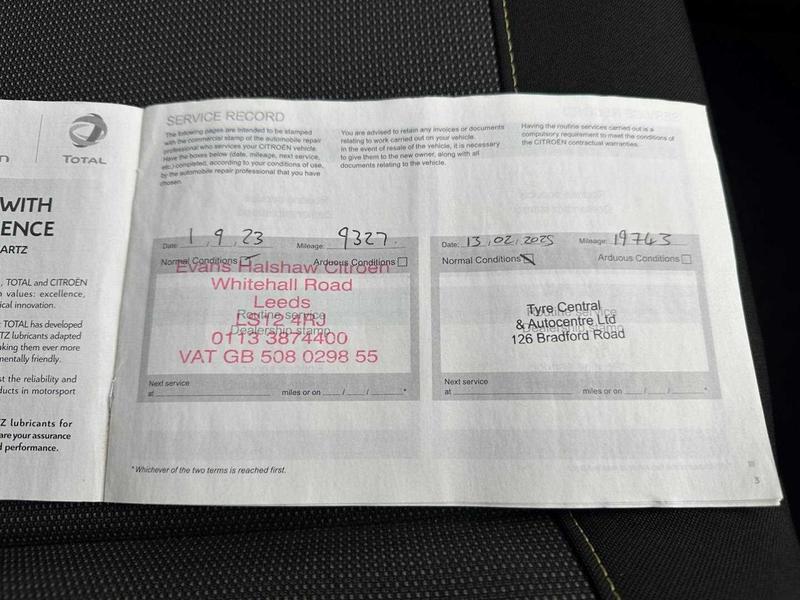 n
TOTAL
WITH
ENCE
ARTZ
, TOTAL and CITROËN
values: excellence,
ical innovation.
TOTAL has developed
TZ lubricants adapted
aking them ever more
mentally friendly.
st the reliability and
ducts in motorsport
Z lubricants for
are your assurance
d performance.
SERVICE RECORD
The following pages are intended to be stamped
with the commercial stamp of the automobile repair
professional who services your CITROËN vehicle.
Have the boxes below (date, mileage, next service,
etc.) completed, according to your conditions of use,
by the automobile repair professional that you have
chosen.
You are advised to retain any invoices or documents
relating to work carried out on your vehicle.
In the event of resale of the vehicle, it is necessary
to give them to the new owner, along with all
documents relating to the vehicle.
Having the routine services carried out is a
compulsory requirement to meet the conditions of
the CITROËN contractual warranties.
Date: 1, 9, 23 Mileage: 9327.
Normal Conditions Arduous Conditions
Evans Halshaw Citroen
Whitehall Road
Leeds
Routine service
LS12 4RJ
Dealership stamp
0113 3874400
VAT GB 508 0298 55
Next service
at miles or on / / *
Date: 13.02.2025 Mileage: 19743
Normal Conditions Arduous Conditions
Tyre Central
Routine service
& Autocentre Ltd
Dealership stamp
126 Bradford Road
Next service
at miles or on / / *
* Whichever of the two terms is reached first.
3